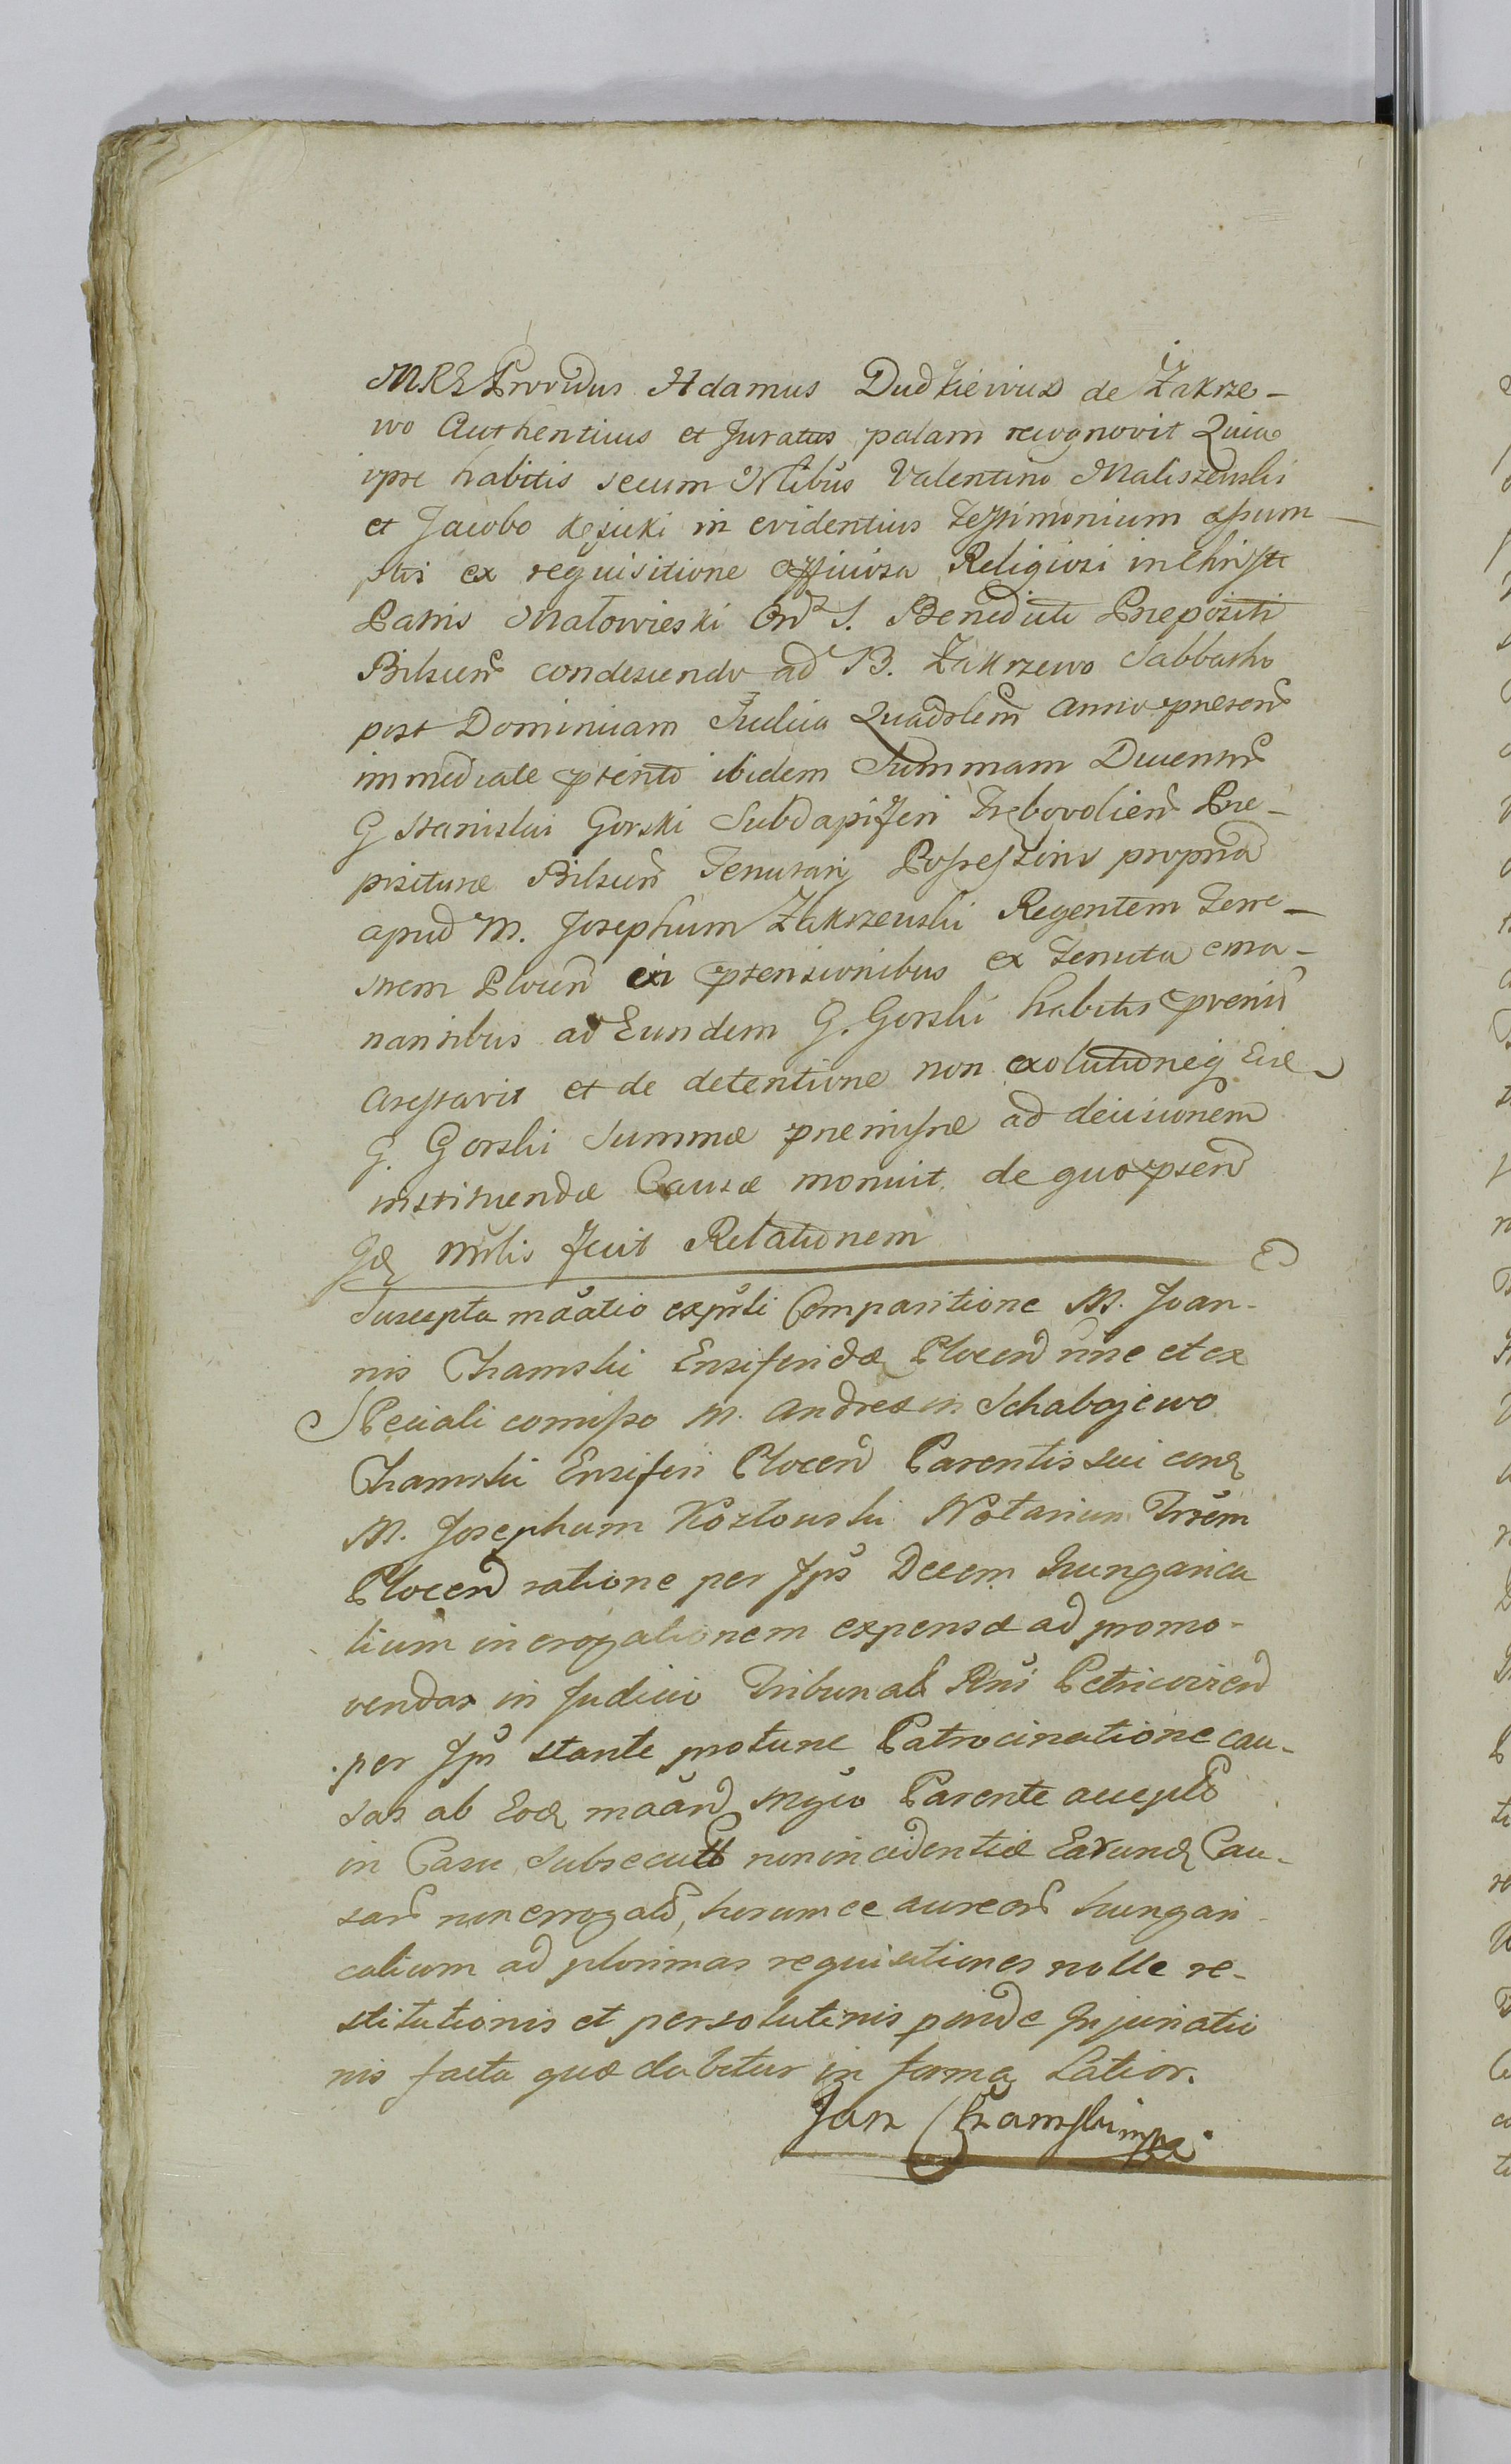 MRG Providus Adamus Dudkiewicz de Zakrze-
wo Authenticus et Juratus palam recognovit Quia
ipse habitis secum Nlibus Valentino Maliszewski
et Jacobo Kęsicki in evidentius Testimonium assum-
ptis ex requisitione officiosa Religiosi in Christo
Patris Małowieski Ord S. Benedicti Praepositi
Bilscen condescendo ad B. Zakrzewo Sabbatho
post Dominicam Judica Quadrlem anno praesen
immediate pterito ibidem Summam Ducentor
G Stanislai Gorski Subdapiferi Trębovolien Prae-
positurae Bilscen Tenutarij Possessoris propria
apud M. Josephum Zakrzewski Regentem Terre-
strem Plocen ex ptensionibus ex Tenuta ema-
nantibus ad Eundem G. Gorski habitis proveniẽ
arestavit et de detentione non exolutioneq Eide
G. Gorski Summae praemissae ad decisionem
instituendae Causae monuit de quo psen
Jdẽ mnlis fecit Relationem
Suscepta mãatio expsli Comparitione M. Joan-
nis Chamski Ensiferidae Plocen suo et ex
Speciali comisso M. Andreae in Schabajewo
Chamski Ensiferi Plocen Parentis sui con
M. Josephum Kozłowski Notarium Trsem
Plocen ratione per Jps Decem hungarica
lium in erogationem expensae ad promo-
vendas in Judicio Tribunal Rni Petricovien
per Jps stante protunc Patrocinatione cau-
sas ab Eod mãan Mgco Parente accept
in Casu subsecut non incidentiae Earund Cau-
sar non errogat, horumce aureor hungari
calium ad plurimas requisitiones nolle re-
stitutionis et persolutinis pinde Injuriatio
nis facta quae dabitur in forma Latior.
Jan Chamski mpa